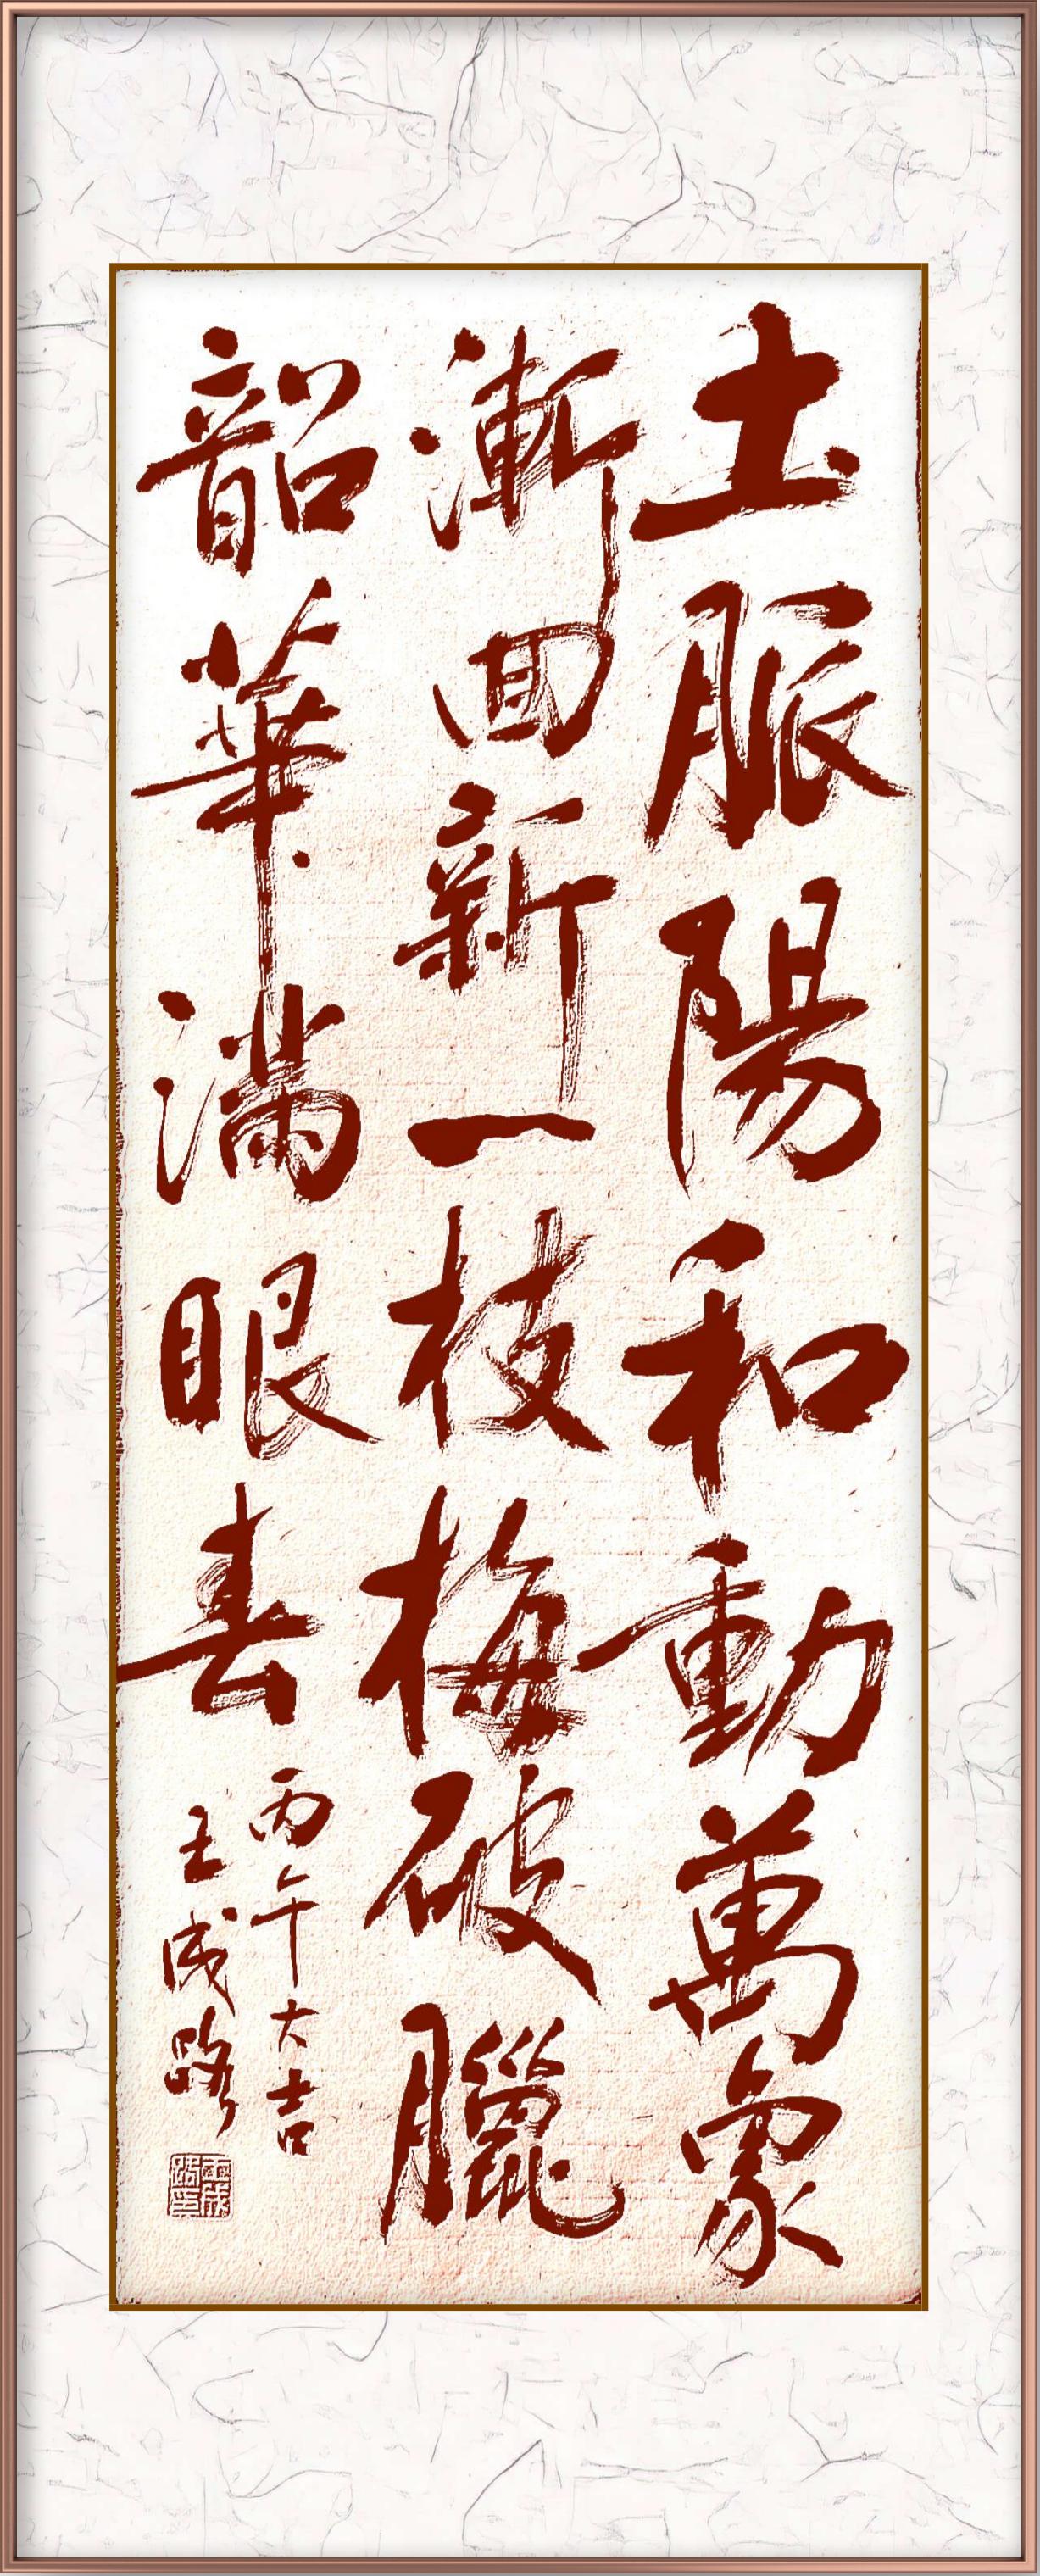 土脈陽和動萬象
漸回新一枝梅破臘
韶華滿眼春
丙午大吉
王成路
王成路印